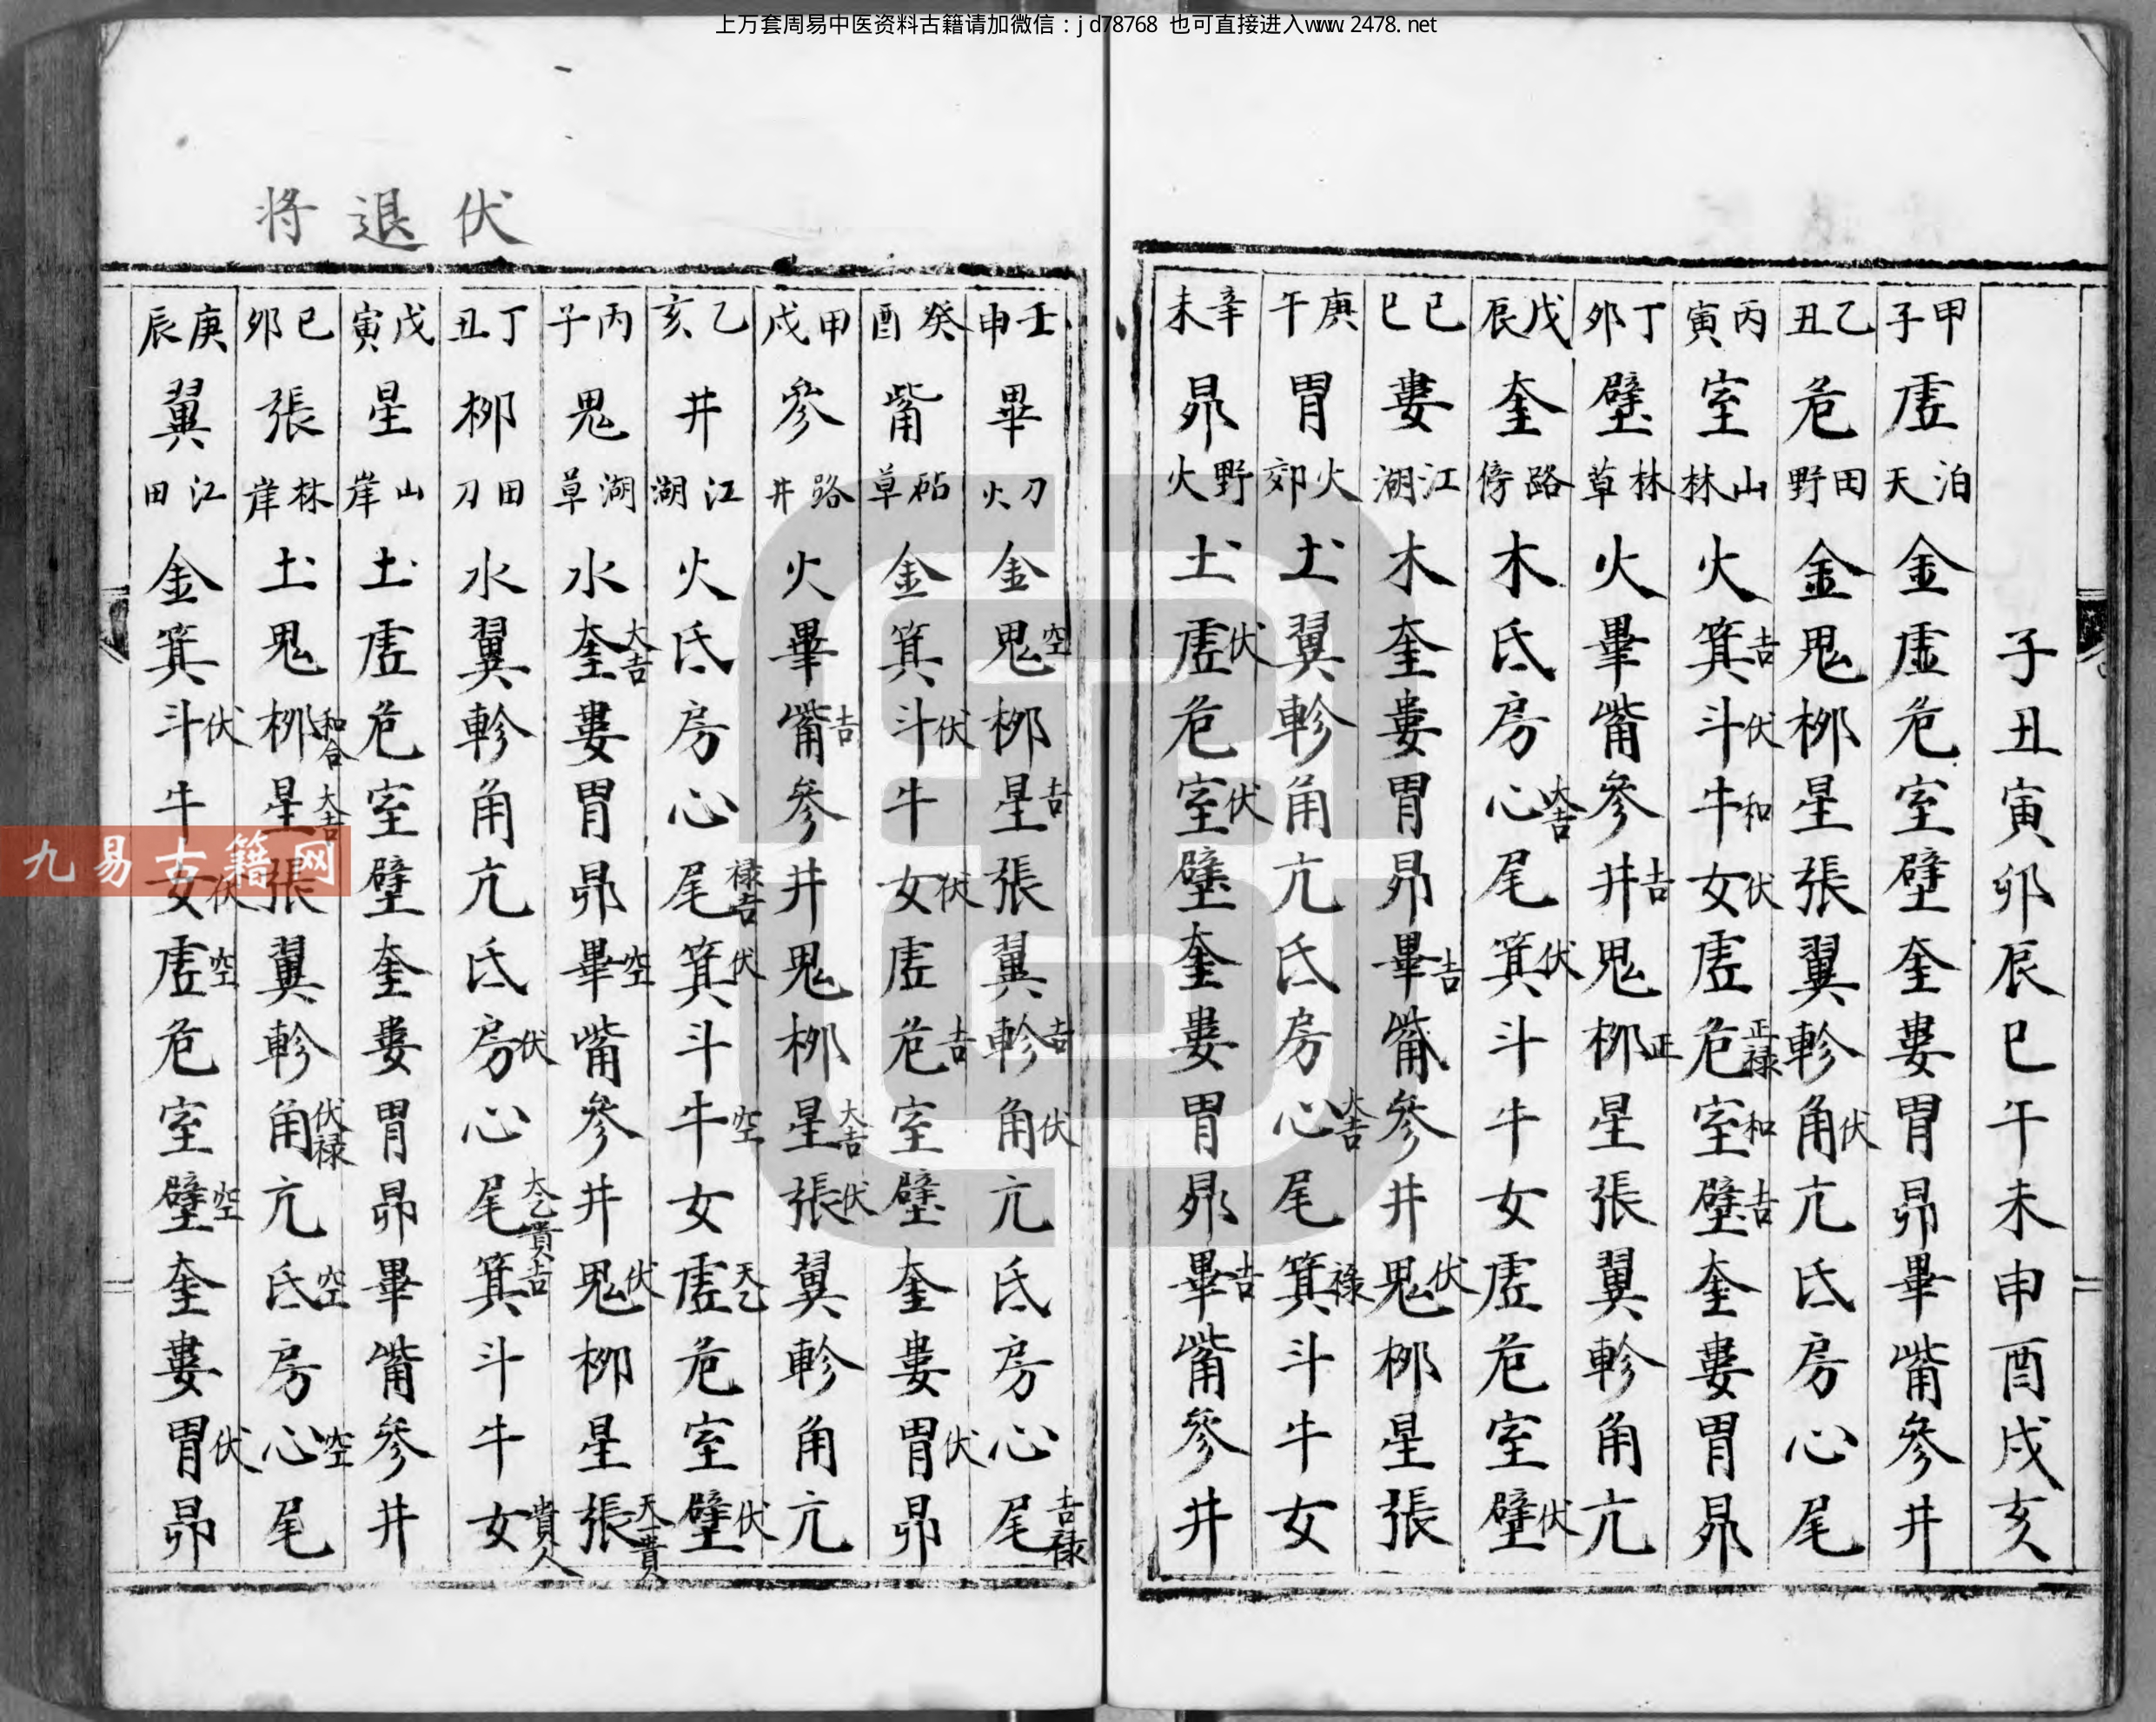 上万套周易中医资料古籍请加微信：jd78768 也可直接进入www.2478.net
子丑寅卯辰巳午未申酉戌亥
甲子虚泊天金虚危室壁奎婁胃昴畢觜參井
乙丑危田野金鬼柳星張翼軫角伏亢氐房心尾
丙寅室山林火箕吉斗伏牛和女伏虚危正禄室和壁吉奎婁胃昴
丁卯壁林草火畢觜參井吉鬼柳正星張翼軫角亢
戊辰奎路傍木氐房心大吉尾箕伏斗牛女虚危室壁伏
己巳婁江湖木奎婁胃昴畢吉觜參井鬼伏柳星張
庚午胃火郊土翼軫角亢氐房心大吉尾箕禄斗牛女
辛未昴野火土虚伏危室伏壁奎婁胃昴畢吉觜參井
伏退将
壬申畢刀火金鬼空柳星吉張翼軫吉角伏亢氐房心尾吉禄
癸酉觜砧草金箕斗伏牛女伏虚危吉室壁奎婁胃伏昴
甲戌參路井火畢觜吉參井鬼柳星大吉張伏翼軫角亢
乙亥井江湖火氐房心尾禄吉箕伏斗牛空女虚天乙危室壁伏
丙子鬼湖草水奎大吉婁胃昴畢空觜參井鬼伏柳星張天乙貴人
丁丑柳田刀水翼軫角亢氐房伏心尾太乙貴吉箕斗牛女貴人
戊寅星山岸土虚危室壁奎婁胃昴畢觜參井
己卯張林岸土鬼柳和合星大吉張翼軫角伏禄亢氐空房心空尾
庚辰翼江田金箕斗伏牛女伏虚空危室壁空奎婁胃伏昴
九易古籍网